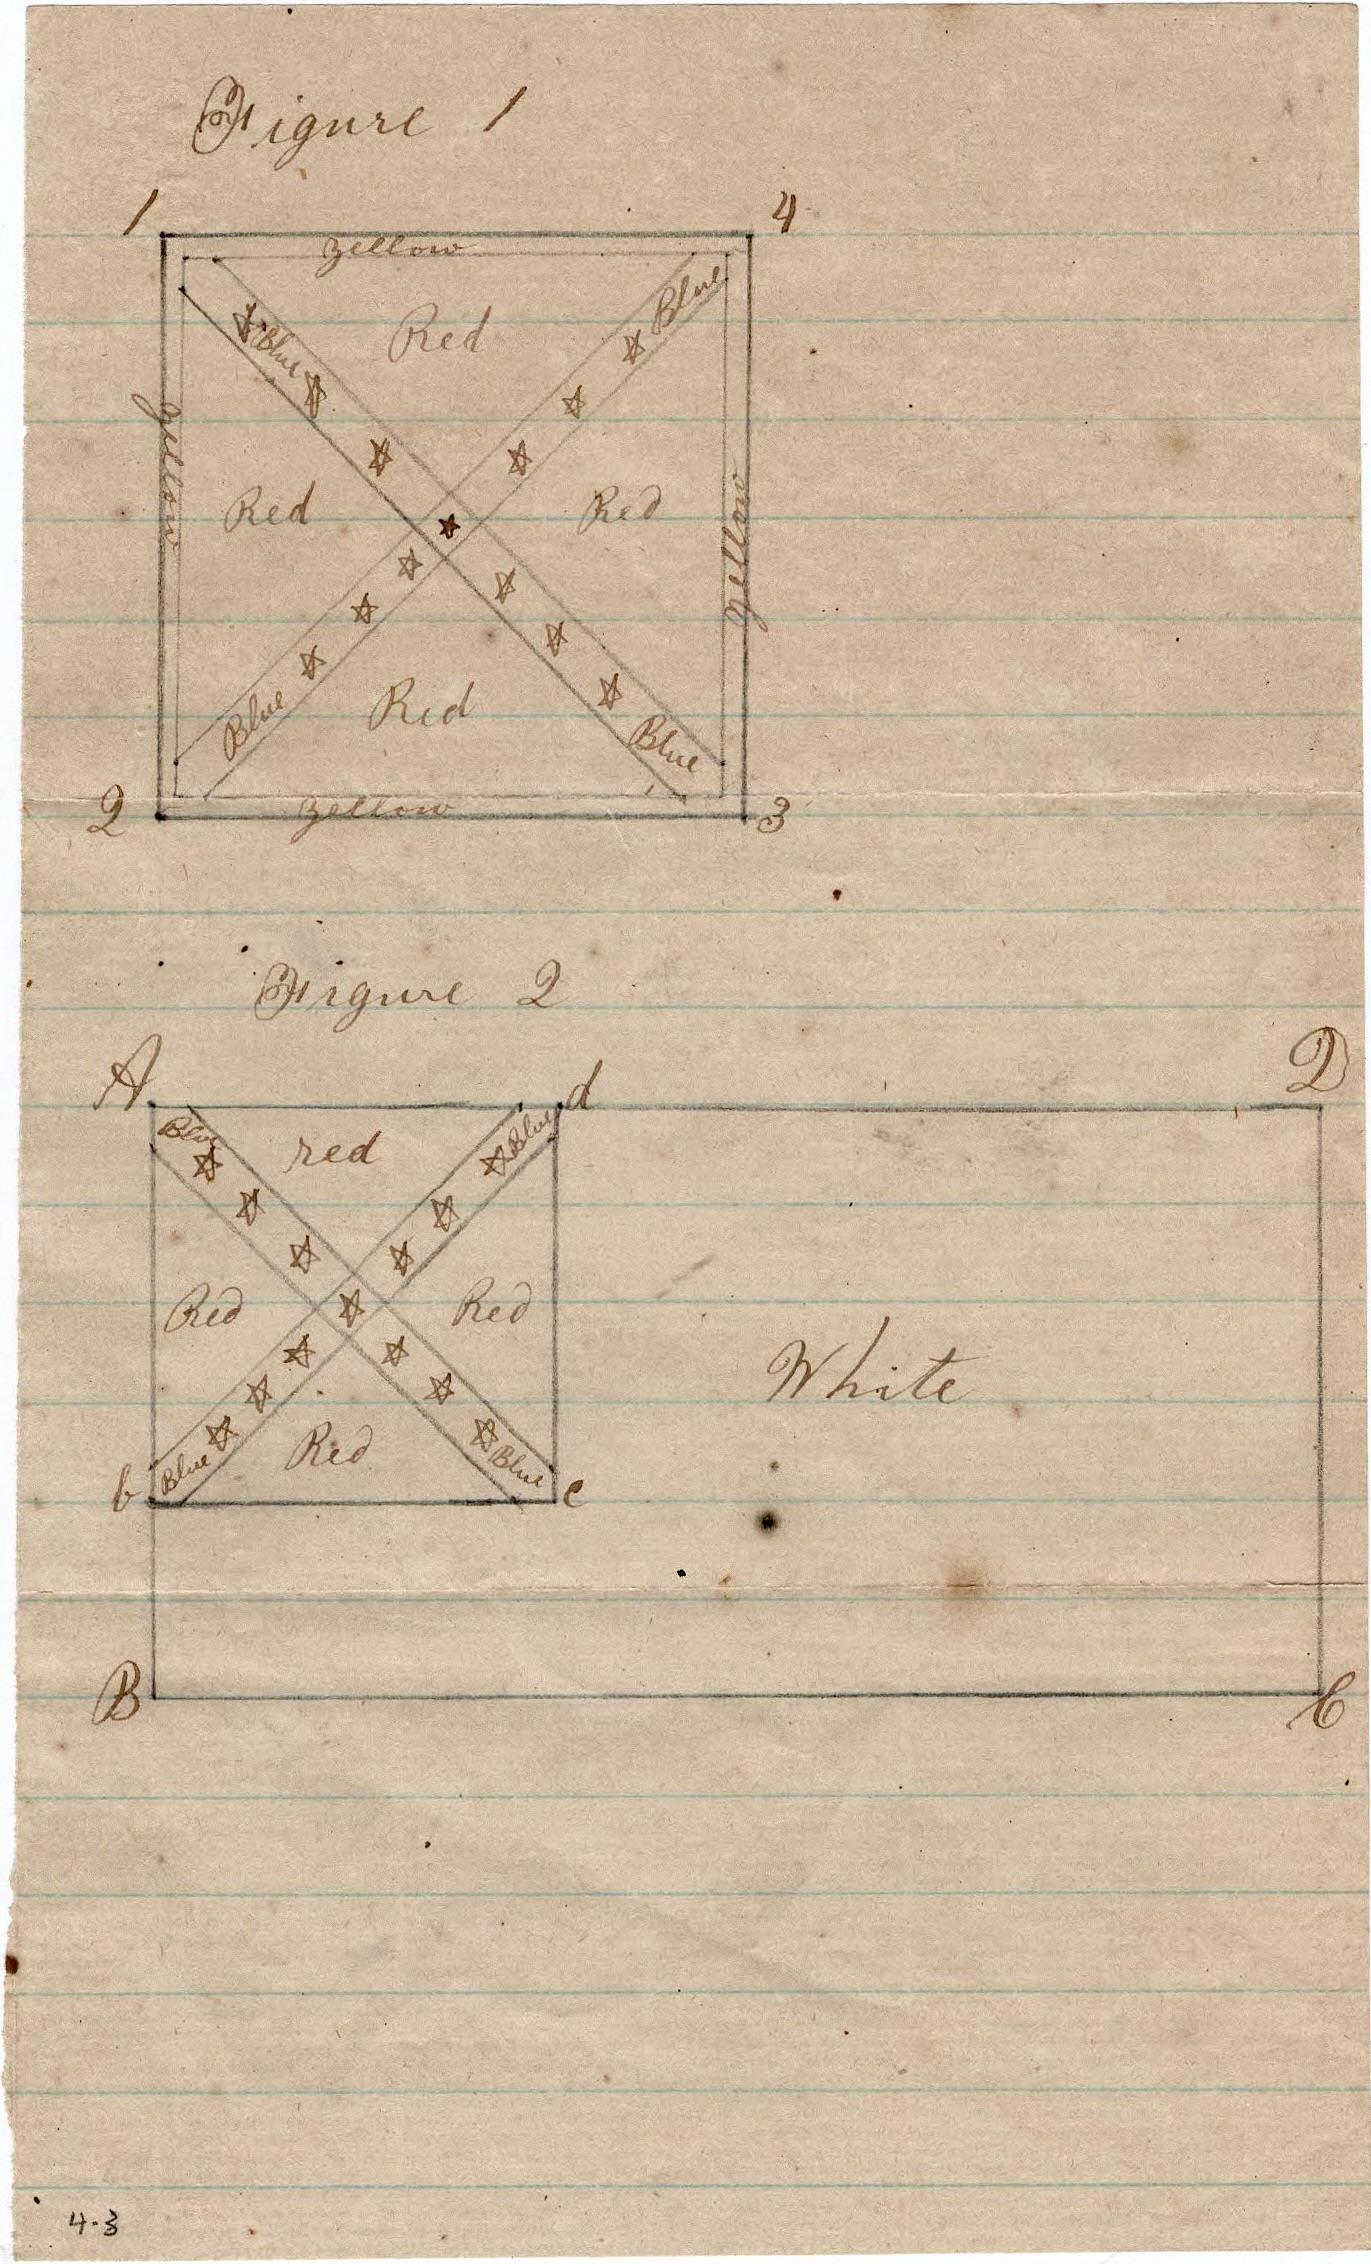 Figure 1
1
4
yellow
Blue
Blue
Red
yellow
Red
Red
yellow
Blue
Red
Blue
2
yellow
3
Figure 2
A
d
D
Blue
red
Blue
Red
Red
White
Blue
Red
Blue
b
c
B
C
4-3